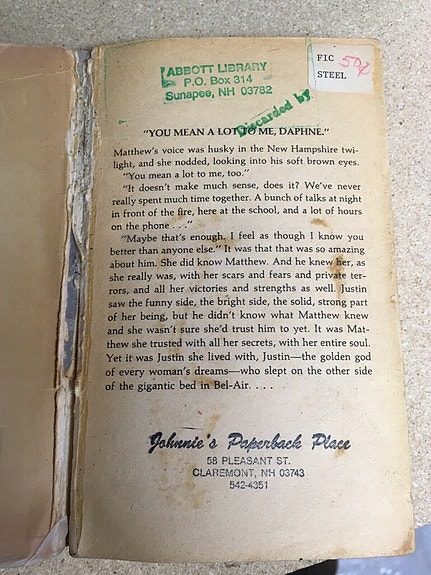 ABBOTT LIBRARY
P.O. Box 314
Sunapee, NH 03782
Discarded by
FIC 50¢
STEEL
"YOU MEAN A LOT TO ME, DAPHNE."
Matthew's voice was husky in the New Hampshire twi-
light, and she nodded, looking into his soft brown eyes.
"You mean a lot to me, too."
"It doesn't make much sense, does it? We've never
really spent much time together. A bunch of talks at night
in front of the fire, here at the school, and a lot of hours
on the phone . . ."
"Maybe that's enough. I feel as though I know you
better than anyone else." It was that that was so amazing
about him. She did know Matthew. And he knew her, as
she really was, with her scars and fears and private ter-
rors, and all her victories and strengths as well. Justin
saw the funny side, the bright side, the solid, strong part
of her being, but he didn't know what Matthew knew
and she wasn't sure she'd trust him to yet. It was Mat-
thew she trusted with all her secrets, with her entire soul.
Yet it was Justin she lived with, Justin—the golden god
of every woman's dreams—who slept on the other side
of the gigantic bed in Bel-Air. . . .
Johnnie's Paperback Place
58 PLEASANT ST.
CLAREMONT, NH 03743
542-4351